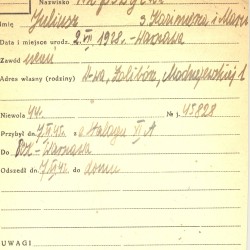 Nazwisko
Imię Juliusz s. Kazimierza i Marii
Data i miejsce urodz. 2.VII 1928 - Warszawa
Zawód uczeń
Adres własny (rodziny) W-wa, Żolibórz, Modrzejewskiej 1
Niewola 44. № j. 45828
Przybył dn. 7.XI.45. z Stalagu VI A
Do PCK - Warszawa
Odszedł dn. 7.XI.45 do domu
UWAGI